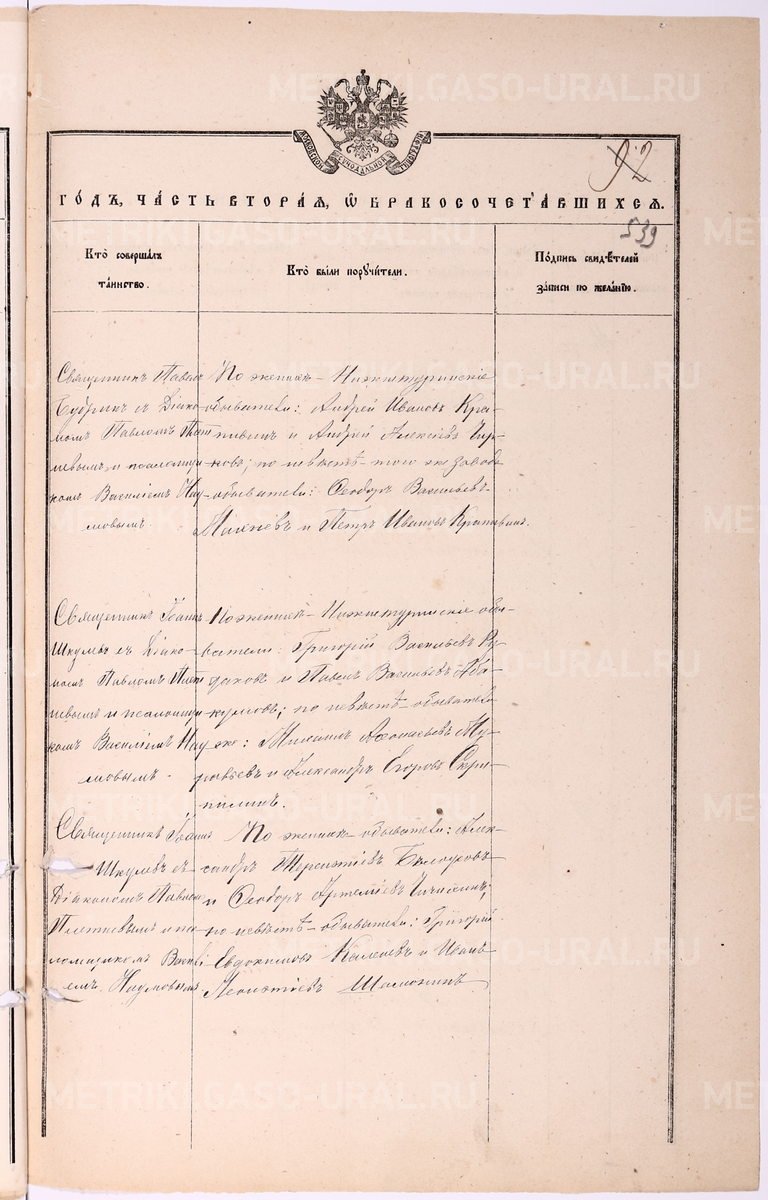 92
ГОДЪ, ЧАСТЬ ВТОРАЯ, Ѡ БРАКОСОЧЕТАВШИХСЯ.
539
Кто совершалъ таинство.
Кто были поручители.
Подпись свидѣтелей записи по желанію.
Священникъ Павелъ
съ Діако-
номъ Павломъ Плет-
невымъ и псаломщи-
комъ Василіемъ Нау-
мовымъ.
По женихѣ – Нижнетуринскіе
обыватели: Андрей Ивановъ Кра-
пивинъ и Андрей Алексѣевъ
по невѣстѣ – того же завода
обыватели: Ѳеодоръ Васильевъ
и Петръ Ивановъ Крапивинъ.
Священникъ Іоаннъ
Шкулевъ съ Діако-
номъ Павломъ Плет-
невымъ и псаломщи-
комъ Василіемъ Нау-
мовымъ.
По женихѣ – Нижнетуринскіе обы-
ватели: Григорій Васильевъ
и Павелъ Васильевъ Аба-
кумовъ; по невѣстѣ – обыватели
же: Михаилъ Аѳонасьевъ Му-
равьевъ и Александръ Егоровъ Скри-
пилинъ.
Священникъ Іоаннъ
Шкулевъ съ
Діакономъ Павломъ
Плетневымъ и пса-
ломщикомъ Васил-
емъ Наумовымъ
По женихѣ – обыватели: Алек-
сандръ Терентіевъ
и Ѳеодоръ Артеміевъ
по невѣстѣ – обыватели: Григорій
Евдокимовъ и Иванъ
Леонтіевъ
METRIKI.GASO-URAL.RU